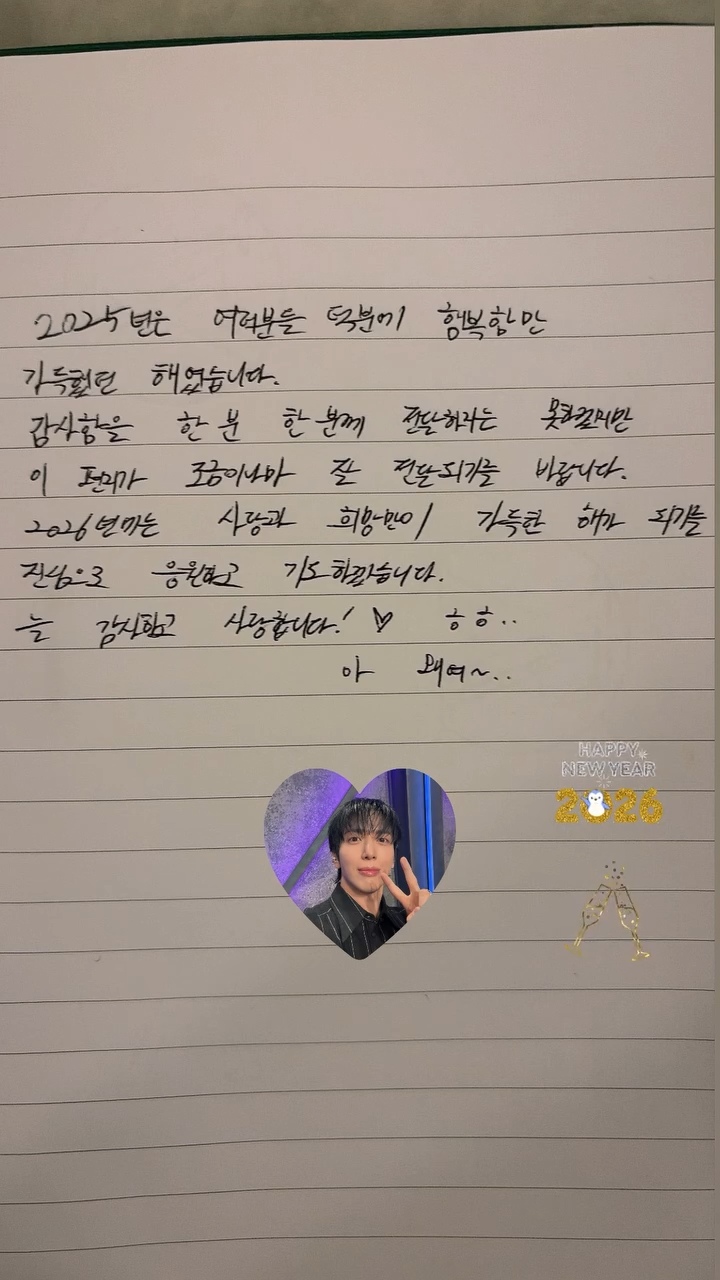 2025년은 여러분들 덕분에 행복함만
가득했던 해였습니다.
감사함을 한 분 한 분께 전달하지는 못하겠지만
이 편지가 조금이나마 잘 전달되기를 바랍니다.
2026년에는 사랑과 희망만이 가득한 해가 되기를
진심으로 응원하고 기도하겠습니다.
늘 감사하고 사랑합니다! ♡ ㅎㅎ..
아 왜여~..
HAPPY
NEW YEAR
2026